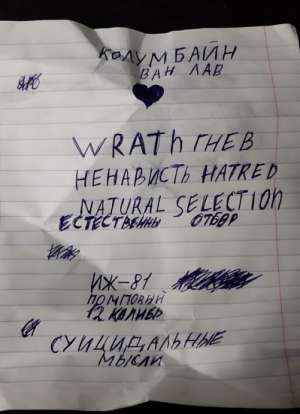 КОЛУМБАЙН
ВАН ЛАВ
WRATh ГНЕВ
НЕНАВИСТЬ HATRED
NATURAL SELECTION
ЕСТЕСТВЕННЫ ОТБОР
ИЖ-81
ПОМПОВЫЙ
12 КАЛИБР
СУИЦИДАЛЬНЫЕ
МЫСЛИ